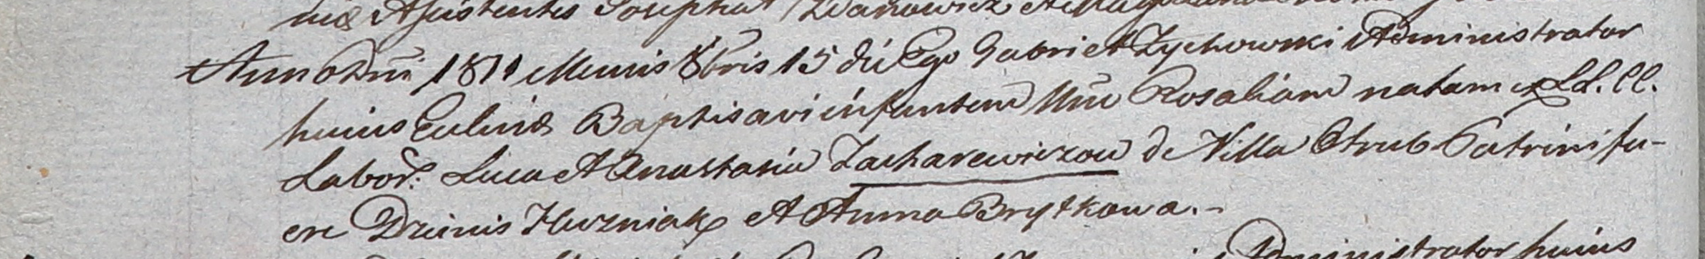 Assistentes Josephat Zdanowicz et
Anno Dni 1811 Mensis 8bris 15 die Ego Gabriel Zychowski Administrator
huius Ecclinæ Baptisavi infantem Nne Rosaliam natam ex LL. CC.
Labor: Luca et Anastasia Zacharewiczow de Villa Otrub Patrini fu-
ere Dzienis Huzniak et Anna Brytkowa.-
Administrator huius